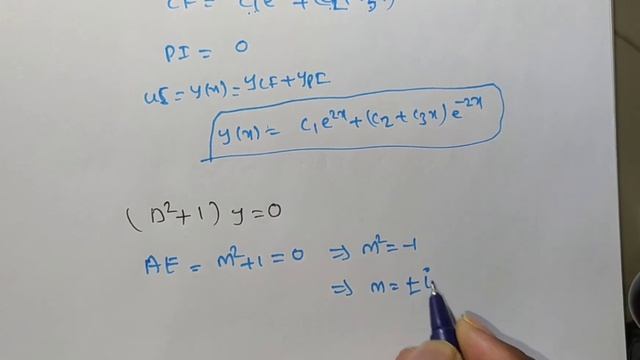 CF =
PI = 0
y(x) = yCF + yPI
y(x) = c₁e²ˣ + (c₂ + c₃x) e⁻²ˣ
(D² + 1) y = 0
AE = m² + 1 = 0 ⇒ m² = -1
⇒ m = ± i